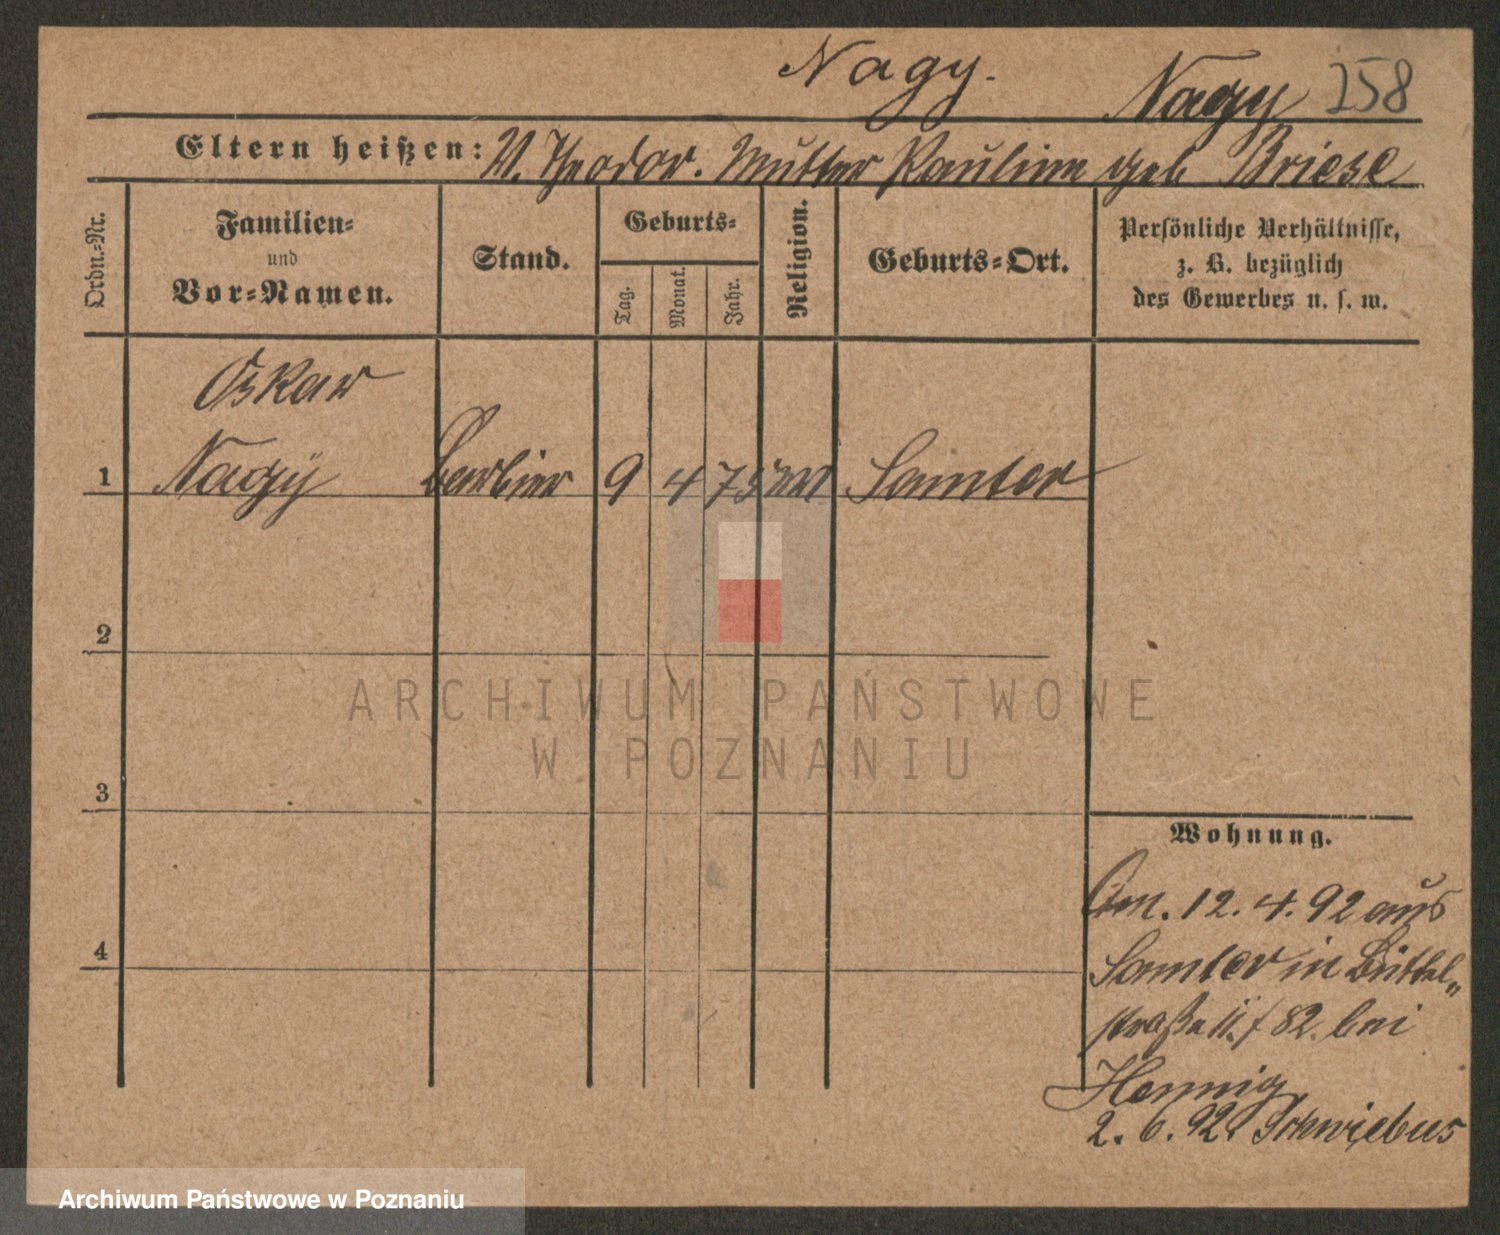 Nagy.
Nagy 258
Eltern heißen: V. Theodor. Mutter Pauline geb Briese
Ordn.-Nr.
Familien-
und
Vor-Namen.
Stand.
Geburts-
Tag.
Monat.
Jahr.
Religion.
Geburts-Ort.
Persönliche Verhältnisse,
z. B. bezüglich
des Gewerbes u. s. w.
Oskar
1 Nagy Barbier 9 4 73 Samter
2
ARCHIWUM PAŃSTWOWE
W POZNANIU
3
Wohnung.
4
An. 12. 4. 92 aus
Samter in Büttel„
straße 11./82. bei
Hennig
2. 6. 92. Schwiebus
Archiwum Państwowe w Poznaniu